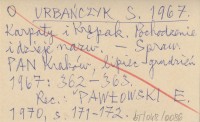 O URBAŃCZYK S. 1967.
Karpaty i Krępak. Pochodzenie
i dzieje nazw. – Spraw.
PAN Kraków, lipiec-grudzień
1967: 362-363.
Rec.: PAWŁOWSKI E.
1970, s. 171-172.